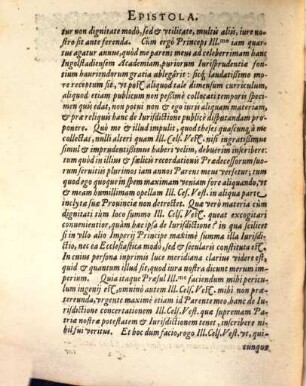 EPISTOLA.
tur non dignitate modo, sed & vtilitate, multis alijs, iure no-
stro sit ante ferenda. Cùm ergò Princeps Ill.mo iam quar-
tus agatur annus, quòd me parens meus ad celeberrimam hanc
Ingolstadiensem Academiam, puriorum Iurisprudentiæ fon-
tium hauriendorum gratia ablegârit: sicq́; laudatissimo mo-
re receptum sit, vt post aliquod tale dimensum curriculum,
aliquod etiam publicum non pessimè collocati temporis spe-
cimen quis edat, non potui non & ego iuris aliquam materiam,
& præ reliquis hanc de Iurisdictione publicè disputandam pro-
ponere. Quò me & illud impulit, quod theses quascunq́; à me
collectas, nulli alteri quàm Ill. Cels. Vest. nisi ingratissimus
simul & imprudentissimus haberi velim, debuerim inscribere:
tum quòd in illius & fœlicis recordationis Prædecessorum suo-
rum seruitijs plurimos iam annos Parens meus versetur, tum
quod ego quoque in spem maximam veniam fore aliquando, vt
& meam humillimam opellam Ill. Cels. Vest. in aliqua parte
inclyta sua Prouincia non detrectet. Qua verò materia cùm
dignitati tùm loco summo Ill. Cels. Vest. quæat excogitari
conuenientior, quàm hæc ipsa de Iurisdictione? in qua & lectis-
si in vllo alio Imperij Principe maximè summa illa Iurisdi-
ctio, nec ea Ecclesiastica modò, sed & secularis constituta est.
In cuius persona inprimis luce meridiana clarius videre est,
quid & quantum illud sit, quod iura nostra dicunt merum im-
perium. Quia itaque Præsul Ill.me faciendum mihi periculum
ingenij est, omninò autem Ill. Cels. Vest. mihi non præ-
tereunda, vrgente maximè etiam id Parente meo, hanc de Iu-
risdictione concertationem Ill. Cels. Vest. qua supremam Pa-
tria nostra potestatem & Iurisdictionem tenet, inscribere ni-
hil sui veritus. Et hoc dum facio, rogo Ill. Cels. Vest. vt, qui-
cunque